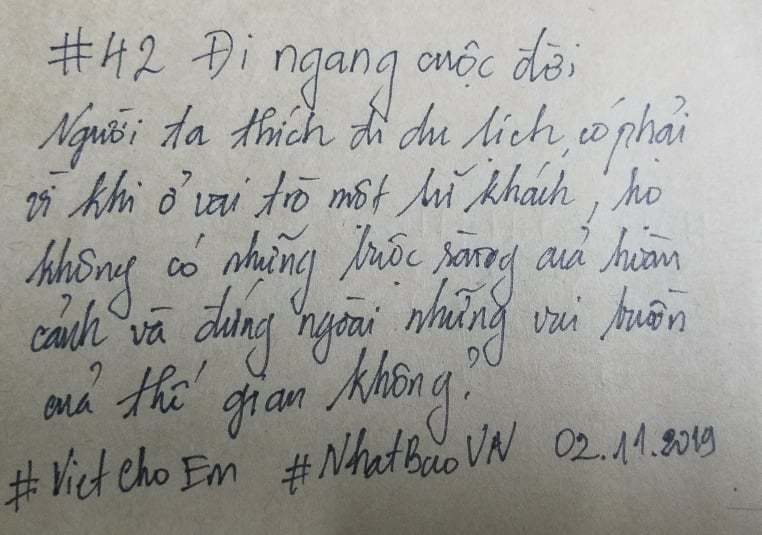 #42 Đi ngang cuộc đời
Người ta thích đi du lịch, có phải
vì khi ở vai trò một lữ khách, họ
không có những buộc ràng của hoàn
cảnh và đứng ngoài những vui buồn
của thế gian không?
#VietChoEm #NhatBaoVN 02.11.2019